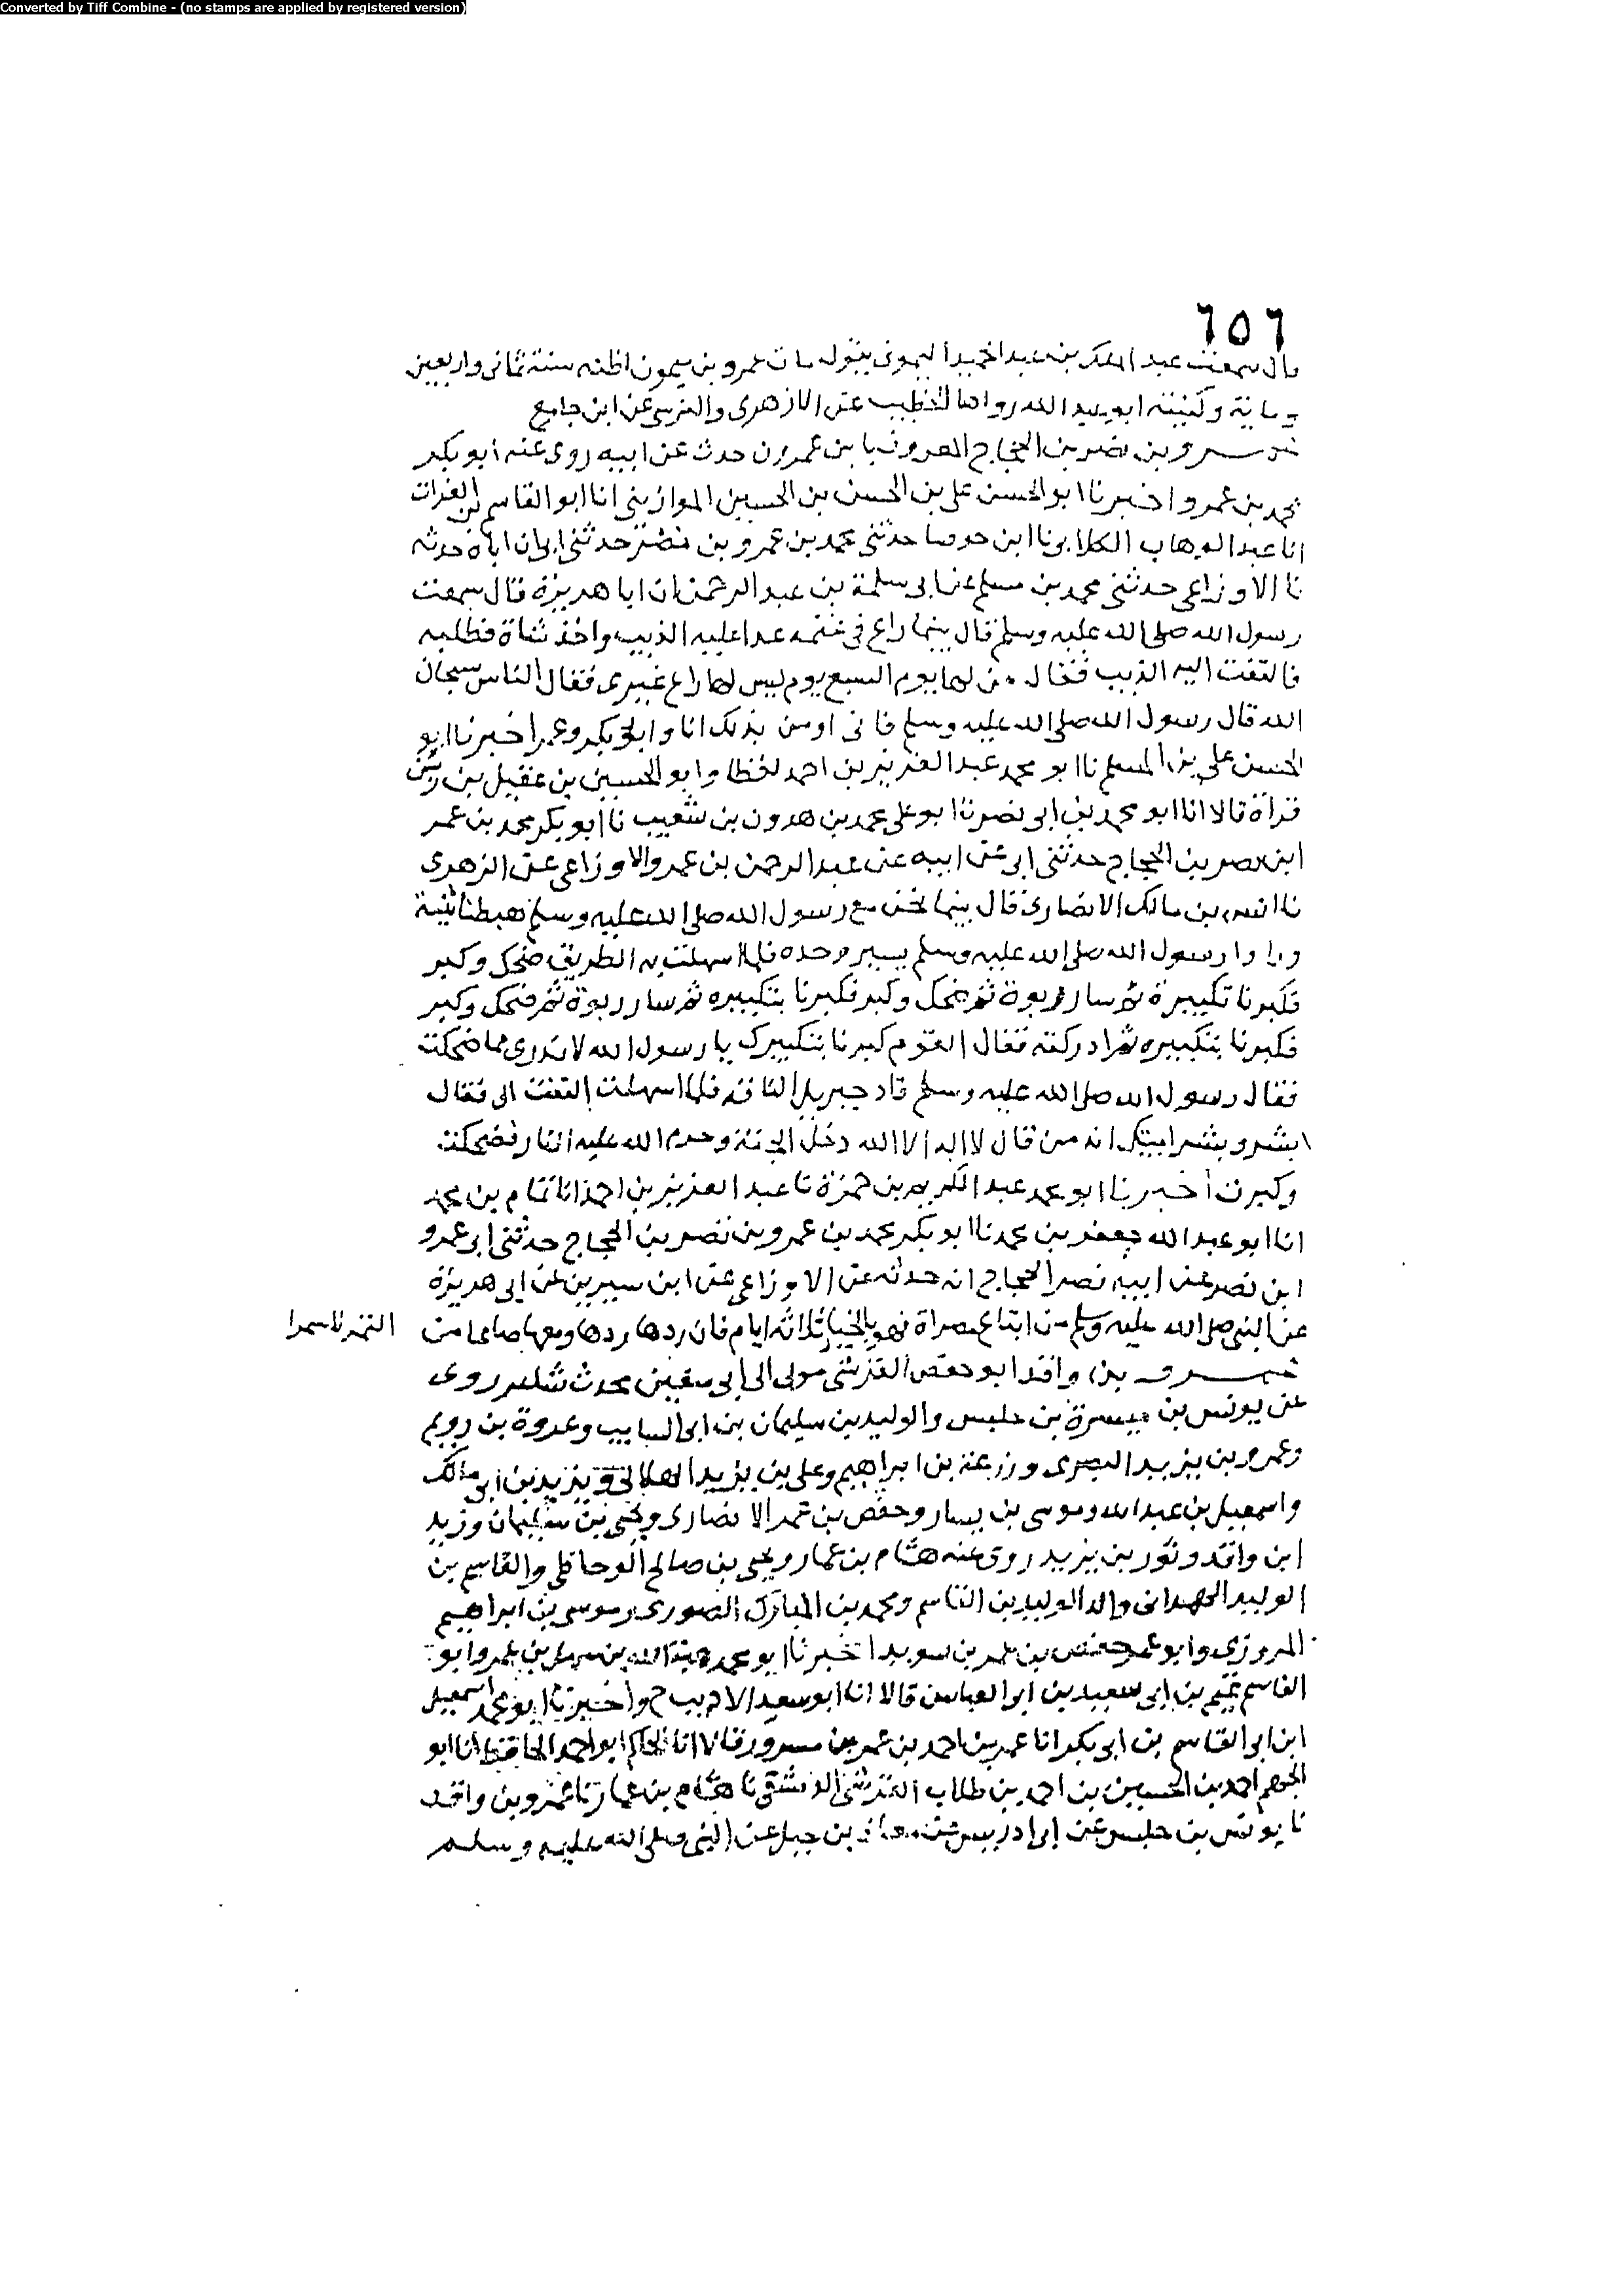 Converted by Tiff Combine - (no stamps are applied by registered version)
٦٥٦
قال سمعت عبد الملك بن عبد الحميد الميموني يقول مات عمرو بن ميمون اظنه سنة ثماني واربعين
وماية وكنيته ابو عبد الله رواها الخطيب عن الازهري والنرسي عن ابن جامع
عمرو بن نصر بن الحجاج المعروف با بن عمرون حدث عن ابيه روى عنه ابو بكر
محمد بن عمرو اخبرنا ابو الحسن علي بن الحسن بن الحسين الموازيني انا ابو القاسم بن الفرات
انا عبد الوهاب الكلابي نا ابن حوصا حدثني محمد بن عمرو بن نصر حدثني ابي ان اباه حدثه
نا الاوزاعي حدثني محمد بن مسلم عن ابي سلمة بن عبد الرحمن ان ابا هريرة قال سمعت
رسول الله صلى الله عليه وسلم قال بينما راع في غنمه عدا عليه الذيب واخذ شاة فطلبه
فالتفت اليه الذيب فقال من لها يوم السبع يوم ليس لها راع غيري فقال الناس سبحان
الله قال رسول الله صلى الله عليه وسلم فاني اومن بذلك انا وابو بكر وعمر اخبرنا ابو
الحسن علي بن المسلم نا ابو محمد عبد العزيز بن احمد لفظا وابو الحسين بن عقيل بن ريش
قراة قالا انا ابو محمد بن ابي نصر نا ابو علي محمد بن هرون بن شعيب نا ابو بكر محمد بن عمر
ابن نصر بن الحجاج حدثني ابي عن ابيه عن عبد الرحمن بن عمرو الاوزاعي عن الزهري
نا انس بن مالك الانصاري قال بينما نحن مع رسول الله صلى الله عليه وسلم هبطنا ثنية
ورسول الله صلى الله عليه وسلم يسير وحده فلما اسهلت به الطريق ضحك وكبر
فكبرنا تكبيرة ثم سار ربوة ثم ضحك وكبر فكبرنا بتكبيره ثم سار ربوة ثم ضحك وكبر
فكبرنا بتكبيره ثم ادركته فقال القوم كبرنا بتكبيرك يا رسول الله لا ندري مما ضحكت
فقال رسول الله صلى الله عليه وسلم قاد جبريل الناقة فلما اسهلت التفت الي فقال
ابشر وبشر امتك انه من قال لا اله الا الله دخل الجنة وحرم الله عليه النار فضحكت
وكبرت اخبرنا ابو محمد عبد الكريم بن حمزة نا عبد العزيز بن احمد انا تمام بن محمد
انا ابو عبد الله جعفر بن محمد نا ابو بكر محمد بن عمرو بن نصر بن الحجاج حدثني ابي عمرو
ابن نصر عن ابيه نصر الحجاج انه حدثه عن الاوزاعي عن ابن سيرين عن ابي هريرة
عن النبي صلى الله عليه وسلم من ابتاع مصراة فهو بالخيار ثلاثة ايام فان ردها ردها ومعها صاعا من
التمر لا سمرا
عمرو بن واقد ابو حفص القرشي مولى ال ابي سفين محدث شاعر روى
عن يونس بن ميسرة بن حلبس والوليد بن سليمان بن ابي السايب وعروة بن رويم
وعمرو بن يزيد البصري وزرعة بن ابراهيم وعلي بن يزيد الهلالي ويزيد بن ابي مالك
واسمعيل بن عبد الله وموسى بن يسار وحفص بن عمر الانصاري ويحيى بن سليمان وزيد
ابن واقد وثور بن يزيد روى عنه هشام بن عمار ويحيى بن صالح الوحاظي والقاسم بن
الوليد الهمداني والد الوليد بن القاسم ومحمد بن المبارك الصوري وموسى بن ابراهيم
المروزي وابو عمر حفص بن عمر بن سويد اخبرنا ابو محمد هبة الله بن سهل بن عمر وابو
القاسم تميم بن ابي سعيد بن ابي العباس قالا انا ابو سعد الاديب ح واخبرنا ابو محمد اسمعيل
ابن ابي القاسم بن ابي بكر انا عمر بن احمد بن عمر بن مسرور قالا انا الحاكم ابو احمد الحافظ انا ابو
الجهم احمد بن الحسين بن احمد بن طلاب القرشي الدمشقي نا هشام بن عمار نا عمرو بن واقد
نا يونس بن حلبس عن ابي ادريس عن معاذ بن جبل عن النبي صلى الله عليه وسلم